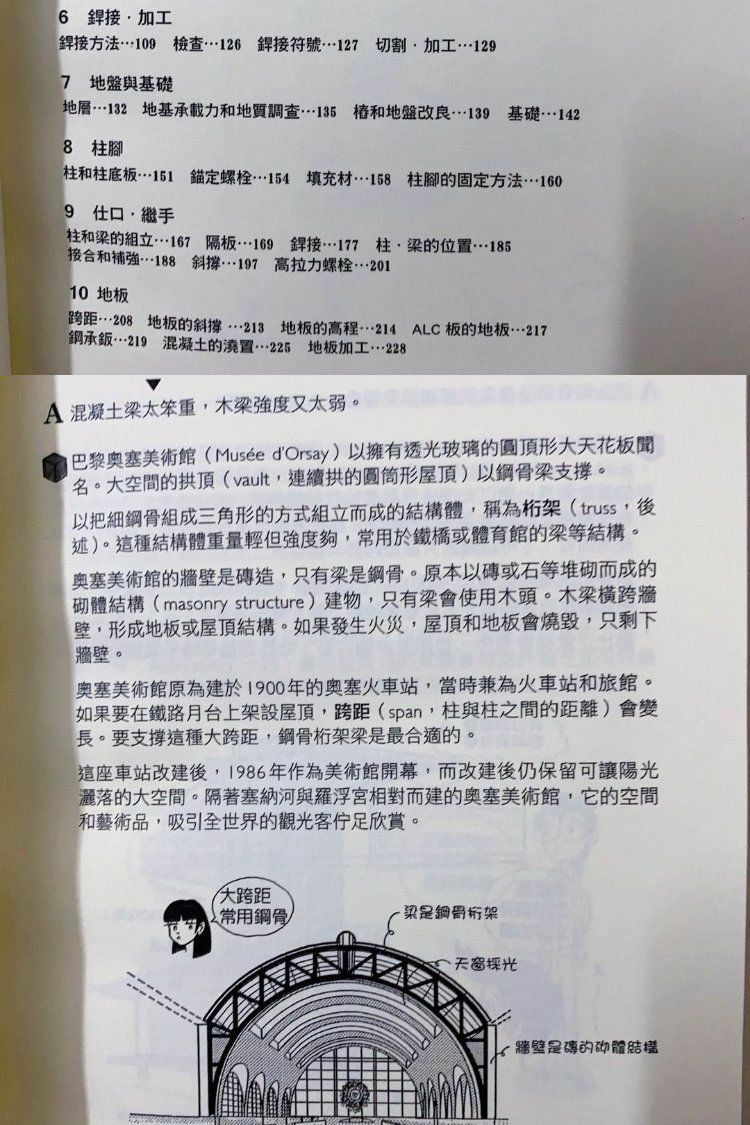 6 銲接．加工
銲接方法…109 檢查…126 銲接符號…127 切割．加工…129
7 地盤與基礎
地層…132 地基承載力和地質調查…135 樁和地盤改良…139 基礎…142
8 柱腳
柱和柱底板…151 錨定螺栓…154 填充材…158 柱腳的固定方法…160
9 仕口．繼手
柱和梁的組立…167 隔板…169 銲接…177 柱．梁的位置…185
接合和補強…188 斜撐…197 高拉力螺栓…201
10 地板
跨距…208 地板的斜撐…213 地板的高程…214 ALC 板的地板…217
鋼承鈑…219 混凝土的澆置…225 地板加工…228
A 混凝土梁太笨重，木梁強度又太弱。
巴黎奧塞美術館（Musée d'Orsay）以擁有透光玻璃的圓頂形大天花板聞
名。大空間的拱頂（vault，連續拱的圓筒形屋頂）以鋼骨梁支撐。
以把細鋼骨組成三角形的方式組立而成的結構體，稱為桁架（truss，後
述）。這種結構體重量輕但強度夠，常用於鐵橋或體育館的梁等結構。
奧塞美術館的牆壁是磚造，只有梁是鋼骨。原本以磚或石等堆砌而成的
砌體結構（masonry structure）建物，只有梁會使用木頭。木梁橫跨牆
壁，形成地板或屋頂結構。如果發生火災，屋頂和地板會燒毀，只剩下
牆壁。
奧塞美術館原為建於1900年的奧塞火車站，當時兼為火車站和旅館。
如果要在鐵路月台上架設屋頂，跨距（span，柱與柱之間的距離）會變
長。要支撐這種大跨距，鋼骨桁架梁是最合適的。
這座車站改建後，1986年作為美術館開幕，而改建後仍保留可讓陽光
灑落的大空間。隔著塞納河與羅浮宮相對而建的奧塞美術館，它的空間
和藝術品，吸引全世界的觀光客佇足欣賞。
大跨距
常用鋼骨
梁是鋼骨桁架
天窗採光
牆壁是磚的砌體結構